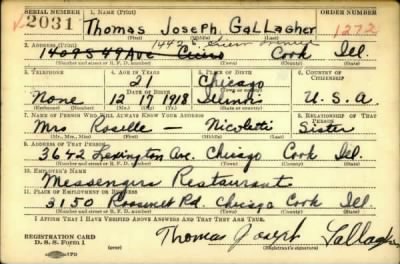 SERIAL NUMBER 1. NAME (Print) ORDER NUMBER
2031 Thomas Joseph Gallagher 1272
(First) (Middle) (Last)
1442
2. ADDRESS (Print)
1409 S 49 Ave Cicero Cook Ill.
(Number and street or R. F. D. number) (Town) (County) (State)
3. TELEPHONE 4. AGE IN YEARS 5. PLACE OF BIRTH 6. COUNTRY OF CITIZENSHIP
21 Chicago
None DATE OF BIRTH Illinois U.S.A.
12 17 1918
(Exchange) (Number) (Mo.) (Day) (Yr.) (State or country)
7. NAME OF PERSON WHO WILL ALWAYS KNOW YOUR ADDRESS 8. RELATIONSHIP OF THAT PERSON
Mrs Roselle — Nicoletti Sister
(Mr., Mrs., Miss) (First) (Middle) (Last)
9. ADDRESS OF THAT PERSON
3642 Lexington Av. Chicago Cook Ill.
(Number and street or R. F. D. number) (Town) (County) (State)
10. EMPLOYER'S NAME
Messengers Restaurant
11. PLACE OF EMPLOYMENT OR BUSINESS
3150 Roosevelt Rd. Chicago Cook Ill.
(Number and street or R. F. D. number) (Town) (County) (State)
I AFFIRM THAT I HAVE VERIFIED ABOVE ANSWERS AND THAT THEY ARE TRUE.
REGISTRATION CARD
D. S. S. Form 1 Thomas Joseph Gallagher
(Registrant's signature)